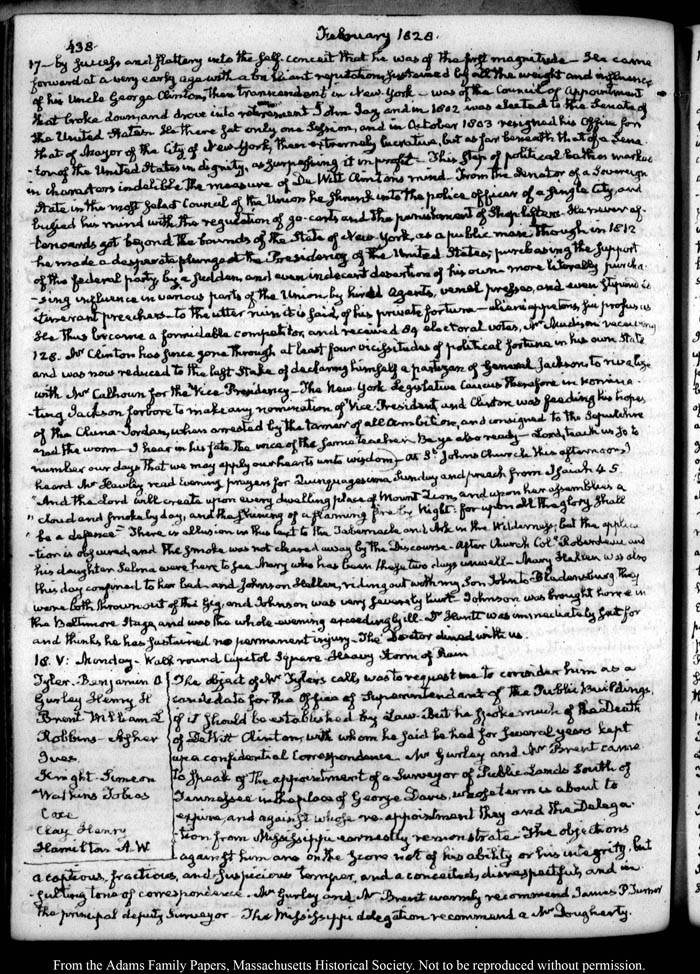 438.
February 1828.
17— by success and flattery into the self-conceit that he was of the first magnitude— He came
forward at a very early age with a brilliant reputation, sustained by all the weight and influence
of his Uncle George Clinton, then transcendent in New-York— was of the Council of Appointment
that broke down, and drove into retirement John Jay, and in 1802 was elected to the Senate of
the United States. He there sat only one Session, and in October 1803 resigned his Office for
that of Mayor of the City of New-York, then extremely lucrative, but as far beneath that of a Sena-
-tor of the United States in dignity, as surpassing it in profit— This step of political bathos marked
in characters indelible the measure of De Witt Clinton's mind— From the Senator of a Sovereign
State in the most select Council of the Union he shrunk into the police officer of a single City, and
busied his mind with the regulation of go-carts and the punishment of Shoplifters. He never af-
-terwards got beyond the bounds of the State of New-York, as a public man. Though in 1812
he made a desperate plunge at the Presidency of the United States, purchasing the support
of the federal party, by a sudden, and even indecent desertion of his own— more literally purcha-
-sing influence in various parts of the Union, by hired Agents, venal presses, and even Stipendia
itinerant preachers— to the utter ruin it is said, of his private fortune— alieni appetens, sui profusus
He thus became a formidable competitor, and received 89 electoral votes, Mr Madison receiving
128. Mr Clinton has since gone through at least four vicissitudes of political fortune in his own State
and was now reduced to the last stake of declaring himself a partizan of General Jackson, to rivalize
with Mr Calhoun for the Vice-Presidency— The New-York Legislative Caucus therefore in nomina-
-ting Jackson forbore to make any nomination of Vice-President and Clinton was feeding his hopes
of the when arrested by the tamer of all ambition, and consigned to the Sepulchre
and the worm— I hear in his fate the voice of the same teacher Be ye also ready— Lord, teach us so to
number our days that we may apply our hearts unto wisdom— At St. Johns Church this afternoon, I
heard Mr Hawley read evening prayers for Quinquagesima Sunday and preach from Isaiah 4.5.
"And the Lord will create upon every dwelling place of Mount Zion, and upon her assemblies a
"cloud and smoke by day, and the shining of a flaming fire by Night: for upon all the glory shall
"be a defence— There is allusion in this text to the Tabernacle and Ark in the Wilderness; but the applica-
-tion is obscured, and the smoke was not cleared away by the Discourse— After Church Coll. Roberdeau and
his daughter Selina were here to see Mary who has been these two days unwell— Mary Hellen was also
this day confined to her bed— and Johnson Hellen, riding out with my Son John to Bladensburg they
were both thrown out of the Gig, and Johnson was very severely hurt— Johnson was brought home in
the Baltimore Stage, and was the whole evening exceedingly ill. Dr Huntt was immediately sent for
and thinks he has sustained no permanent injury— The Doctor dined with us.
18. V: Monday— Walk round Capitol Square Heavy Storm of Rain
Tyler— Benjamin O
Gurley Henry H
Brent William L
Robbins— Asher
Ives.
Knight— Simeon
Watkins Tobias
Coxe
Clay Henry
Hamilton A. W
The object of Mr Tyler's call, was to request me to consider him as a
candidate for the Office of Superintendent of the Public Buildings,
if it should be established by Law. But he spoke much of the Death
of De Witt Clinton, with whom he said he had for several years kept
up a confidential Correspondence Mr Gurley and Mr Brent came
to speak of the appointment of a Surveyor of Public Lands South of
Tennessee in the place of George Davis, whose term is about to
expire, and against whose re-appointment they and the Delega-
-tion from Mississippi earnestly remonstrate— The objections
against him are on the Score not of his ability or his integrity, but
a captious, fractious, and suspicious temper, and a conceited, disrespectful, and in-
-sulting tone of correspondence. Mr Gurley and Mr Brent warmly recommend James P. Turner
the principal deputy Surveyor— The Mississippi delegation recommend a Mr Dougherty.
From the Adams Family Papers, Massachusetts Historical Society. Not to be reproduced without permission.